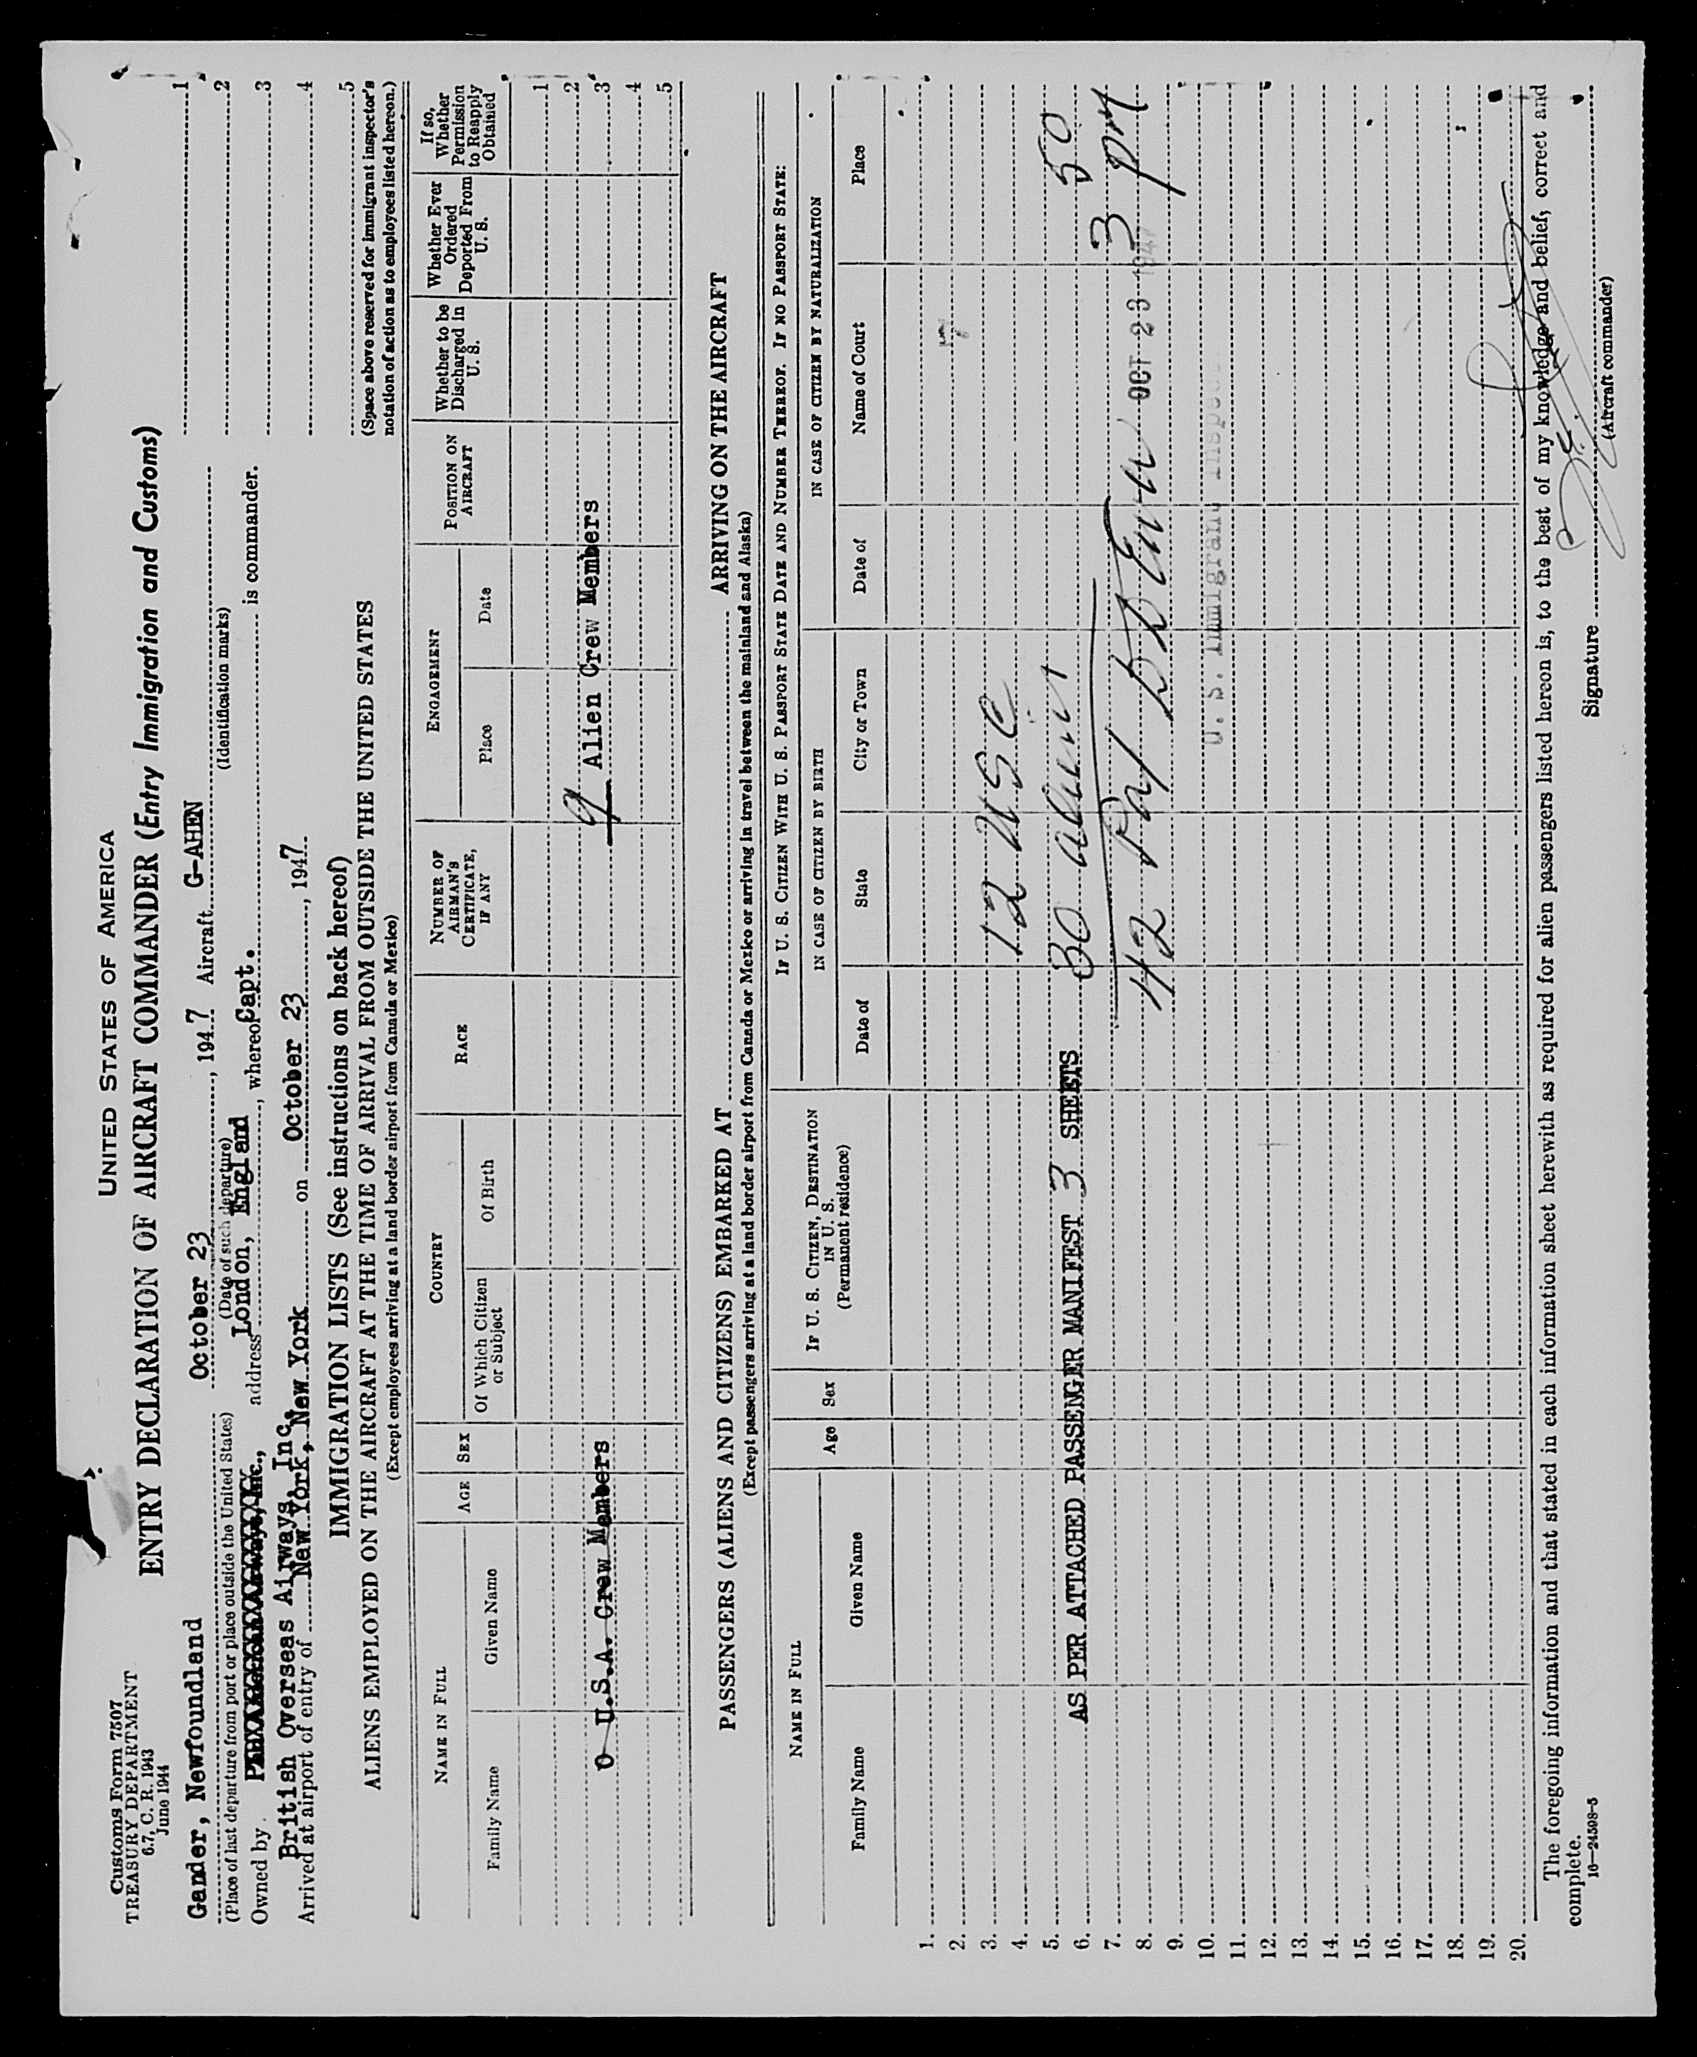 Customs Form 7507
TREASURY DEPARTMENT
6.7, C. R. 1943
June 1944
UNITED STATES OF AMERICA
ENTRY DECLARATION OF AIRCRAFT COMMANDER (Entry Immigration and Customs)
Gander, Newfoundland October 23, 1947 Aircraft G-AHEN
(Place of last departure from port or place outside the United States) (Date of such departure) (Identification marks)
Owned by address London, England, whereof Capt. is commander.
British Overseas Airways, Inc.
Arrived at airport of entry of New York, New York on October 23, 1947
1
2
3
4
5
(Space above reserved for immigrant inspector's
notation of action as to employees listed hereon.)
IMMIGRATION LISTS (See instructions on back hereof)
ALIENS EMPLOYED ON THE AIRCRAFT AT THE TIME OF ARRIVAL FROM OUTSIDE THE UNITED STATES
(Except employees arriving at a land border airport from Canada or Mexico)
NAME IN FULL AGE SEX COUNTRY RACE NUMBER OF AIRMAN'S CERTIFICATE, IF ANY ENGAGEMENT POSITION ON AIRCRAFT Whether to be Discharged in U. S. Whether Ever Ordered Deported From U. S. If so, Whether Permission to Reapply Obtained
Family Name Given Name Of Which Citizen or Subject Of Birth Place Date
1
2
0 U.S.A. Crew Members 9 Alien Crew Members 3
4
5
PASSENGERS (ALIENS AND CITIZENS) EMBARKED AT ARRIVING ON THE AIRCRAFT
(Except passengers arriving at a land border airport from Canada or Mexico or arriving in travel between the mainland and Alaska)
NAME IN FULL Age Sex IF U. S. CITIZEN, DESTINATION IN U. S. (Permanent residence) IF U. S. CITIZEN WITH U. S. PASSPORT STATE DATE AND NUMBER THEREOF. IF NO PASSPORT STATE:
IN CASE OF CITIZEN BY BIRTH IN CASE OF CITIZEN BY NATURALIZATION
Family Name Given Name Date of State City or Town Date of Name of Court Place
1.
2.
3. 12 USC
4.
5.
6. AS PER ATTACHED PASSENGER MANIFEST 3 SHEETS 30 aliens 50
7. 3 PM
8. 42 OCT 23 1947
9.
10. U. S. Immigrant Inspec
11.
12.
13.
14.
15.
16.
17.
18.
19.
20.
The foregoing information and that stated in each information sheet herewith as required for alien passengers listed hereon is, to the best of my knowledge and belief, correct and
complete.
16—24598-5
Signature
(Aircraft commander)